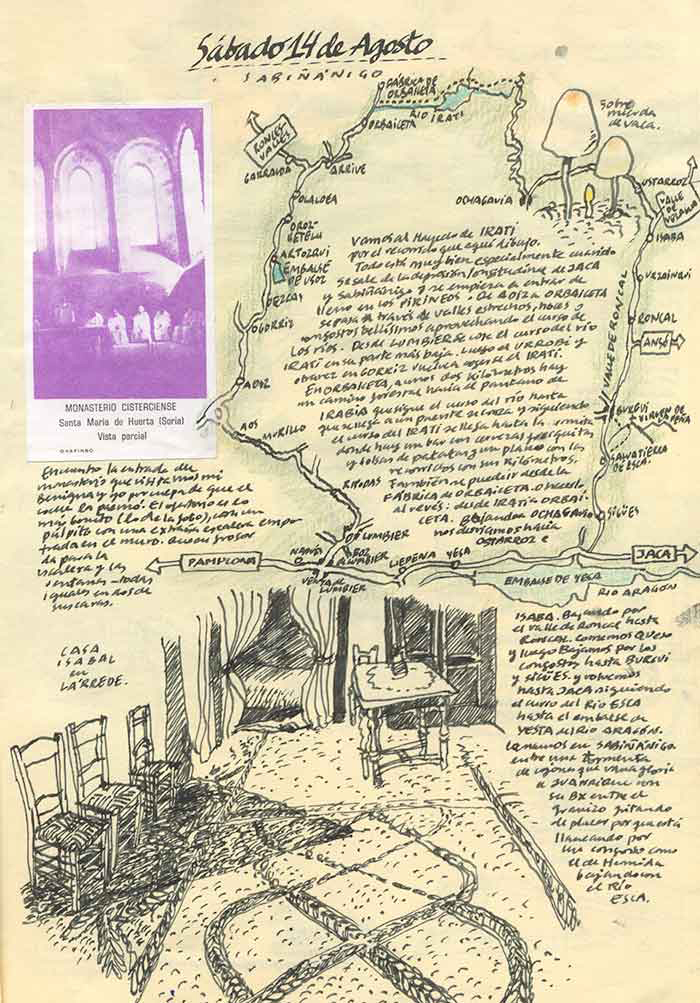 Sábado 14 de Agosto
SABIÑÁNIGO
FÁBRICA DE
ORBAICETA
RIO IRATI
ORBAICETA
RONCES
VALLES
GARRALDA
ARRIVE
OLALDEA
OROZ-
BETELU
ARTOZQUI
EMBALSE
DE USOZ
GORRIZ
AOIZ
AOS
MURILLO
RIPODAS
LUMBIER
VENTA de
LUMBIER
LIEDENA
YESA
PAMPLONA
JACA
EMBALSE DE YESA
RIO ARAGÓN
OCHAGAVIA
Sobre
mierda
de vaca.
USTARROZ
VALLE
DE
ISABA
URZAINQUI
RONCAL
ANSÓ
VALLE DE RONCAL
BURGUI
VIRGEN DE
LA PEÑA
SALVATIERRA
DE ESCA.
SIGÜES
MONASTERIO CISTERCIENSE
Santa María de Huerta (Soria)
Vista parcial
Vamos al Hayedo de IRATI
por el recorrido que aquí dibujo.
Todo está muy bien especialmente cuando
se sale de la depresión longitudinal de JACA
y Sabiñánigo y se empieza a entrar de
lleno en los PIRINEOS. De AOIZ a ORBAICETA
se pasa a través de valles estrechos, hoces y
congostos bellísimos aprovechando el curso de
los ríos. Desde LUMBIER se coge el curso del río
IRATI en su parte más baja. Luego el URROBI y
otra vez en GORRIZ vuelve a cogerse el IRATI.
En ORBAICETA, a unos dos kilómetros hay
un camino forestal hacia el pantano de
IRABIA que sigue el curso del río hasta
que se llega a un puente se cruza y siguiendo
el curso del IRATI se llega hasta la ermita
donde hay un bar con cerveza fresquita
y bolsas de patatas y un plano con los
recorridos con sus kilómetros.
También se puede ir desde la
FÁBRICA de ORBAICETA. O hacerlo
al revés: desde IRATI a ORBAI-
CETA. Bajando a OCHAGAVIA
nos dirigimos hacia
USTARROZ e
Encuentro la entrada del
monasterio que visitamos mi
Benigna y yo por culpa de que el
coche la palmó. El refectorio es lo
más bonito (lo de la foto), con un
púlpito con una extraña escalera empo-
trada en el muro. Buen grosor
da para la
escalera y las
ventanas - todas
iguales en dos de
sus caras.
CASA
ISABAL
en
LÁRREDE.
ISABA. Bajando por
el valle de Roncal hasta
RONCAL. Comemos queso
y luego Bajamos por los
congostos hasta BURGUI
y SIGÜES. y volvemos
hasta JACA siguiendo
el curso del Río ESCA
hasta el embalse de
YESA del Río ARAGÓN.
Cenamos en SABIÑÁNIGO
entre una tormenta
de que va a la gloria
a JUANRIQUE con
su BX entre el
granizo gritando
de placer por que está
flaneando por
un congosto como
el de Hermida
bajando con
el Río
ESCA.